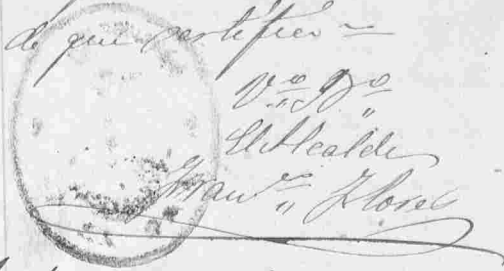 de que certifico =
Vº Bº
El Alcalde
Franco Flores